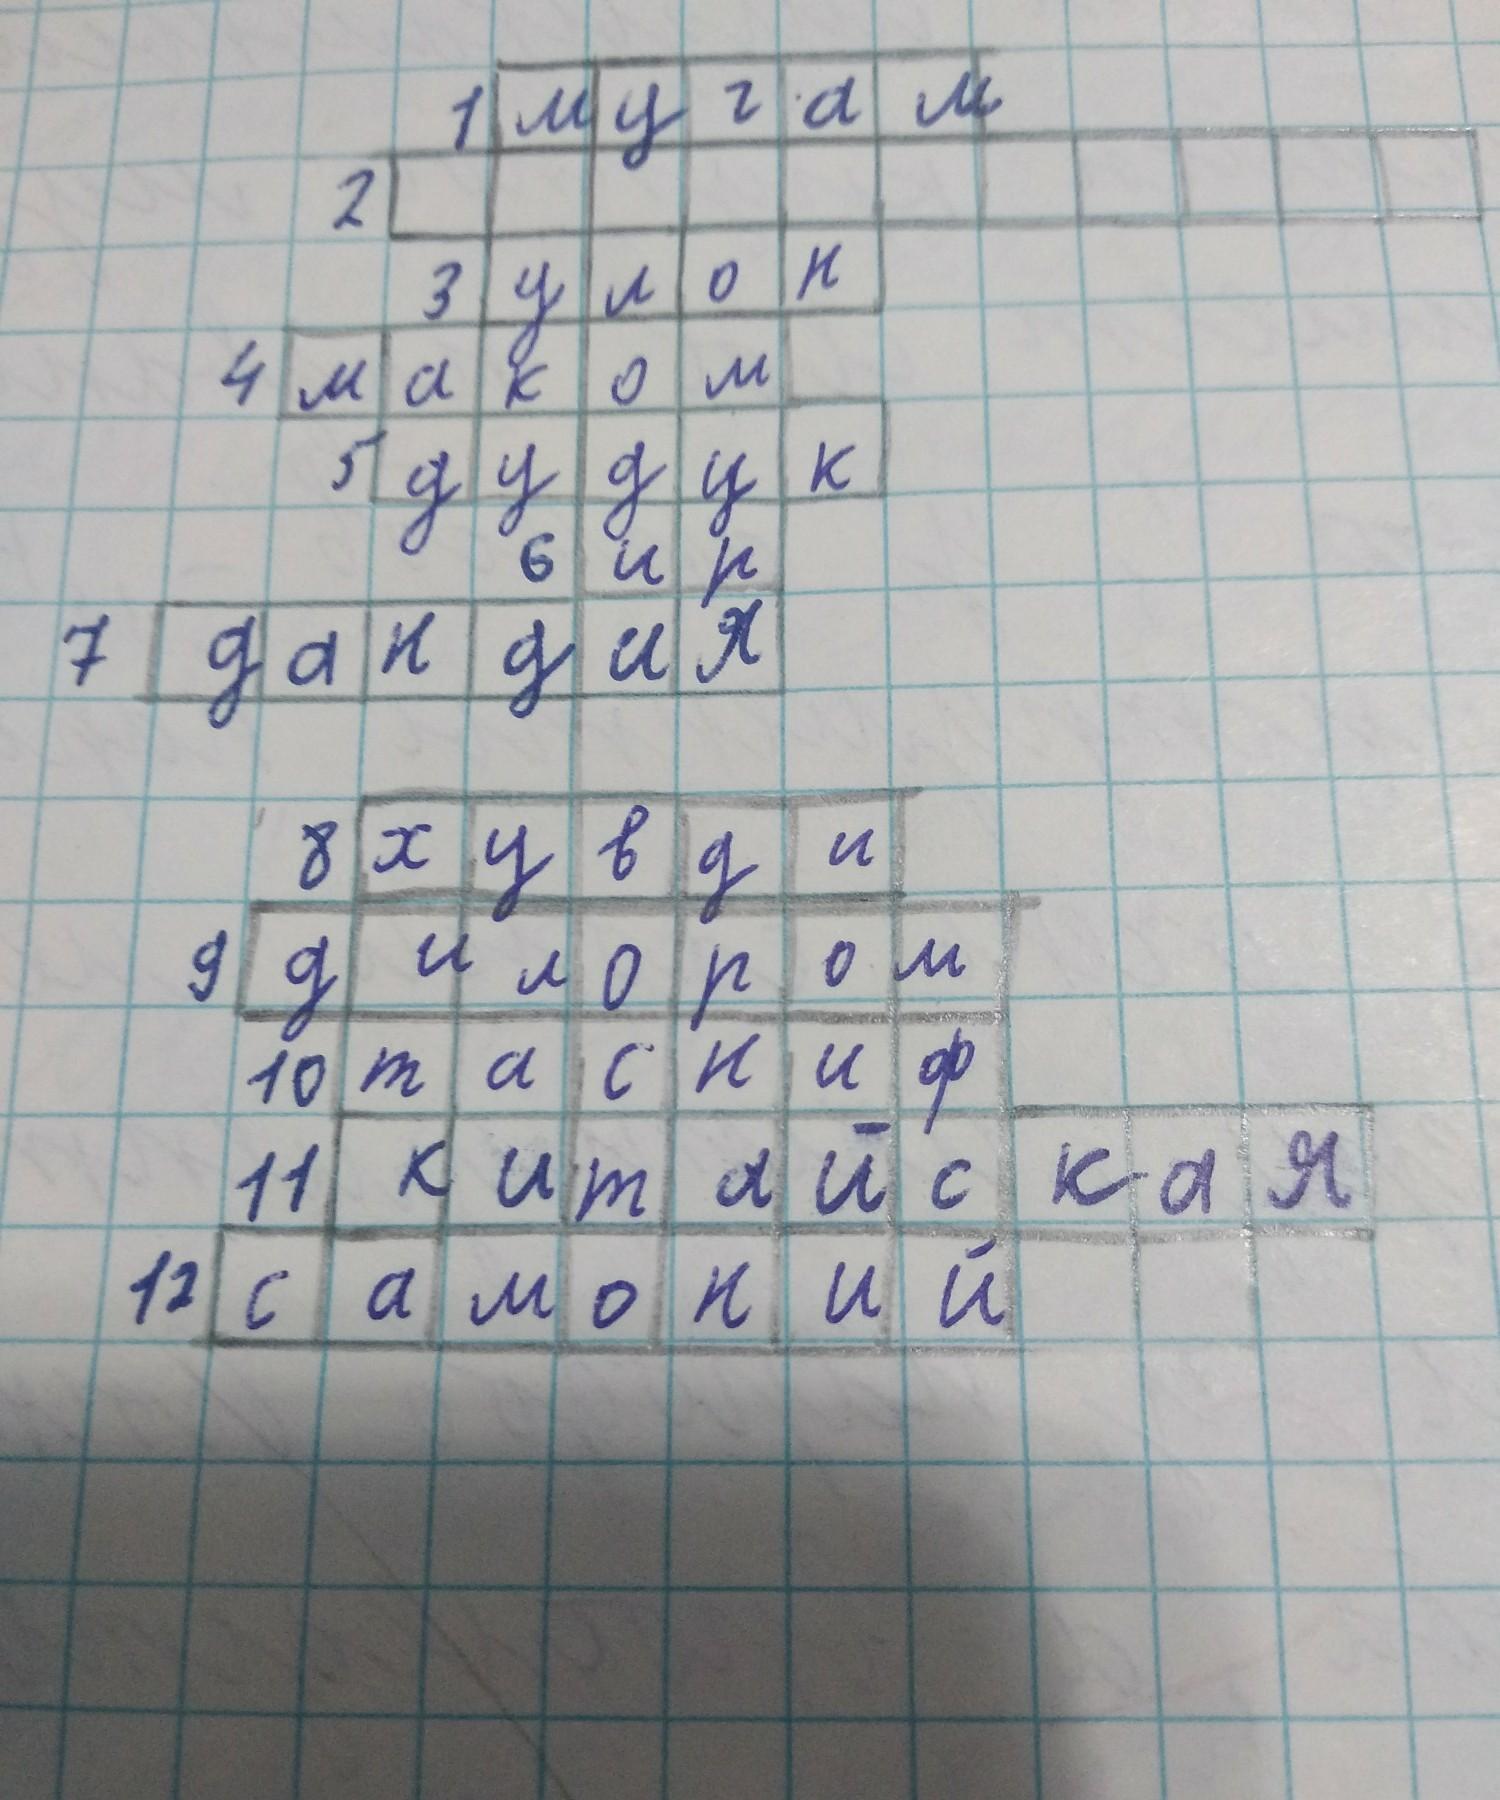 1 мугам
2
3 улон
4 маком
5 дудук
6 ир
7 дандия
8 хувди
9 дилором
10 тасниф
11 китайская
12 самоний